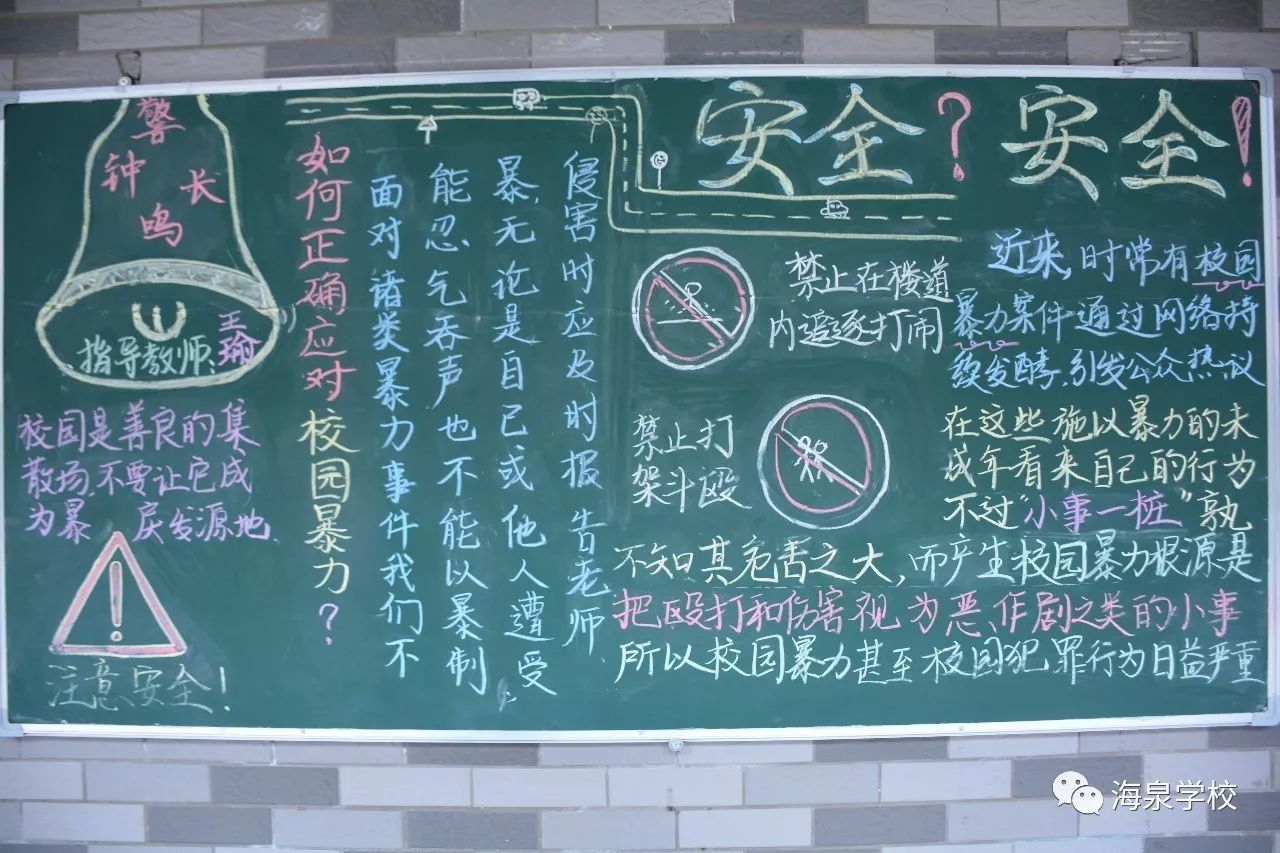 警
钟 长
鸣
指导教师：王瑜
校园是善良的集
散场，不要让它成
为暴 戾发源地
注意安全！
如何正确应对校园暴力？
面对诸类暴力事件我们不
能忍气吞声也不能以暴制
暴，无论是自己或他人遭受
侵害时应及时报告老师
安全？安全！
禁止在楼道
内追逐打闹
禁止打
架斗殴
近来，时常有校园
暴力案件通过网络持
续发酵，引发公众热议
在这些施以暴力的未
成年看来自己的行为
不过“小事一桩”孰
不知其危害之大，而产生校园暴力根源是
把殴打和伤害视为恶作剧之类的小事
所以校园暴力甚至校园犯罪行为日益严重
海泉学校